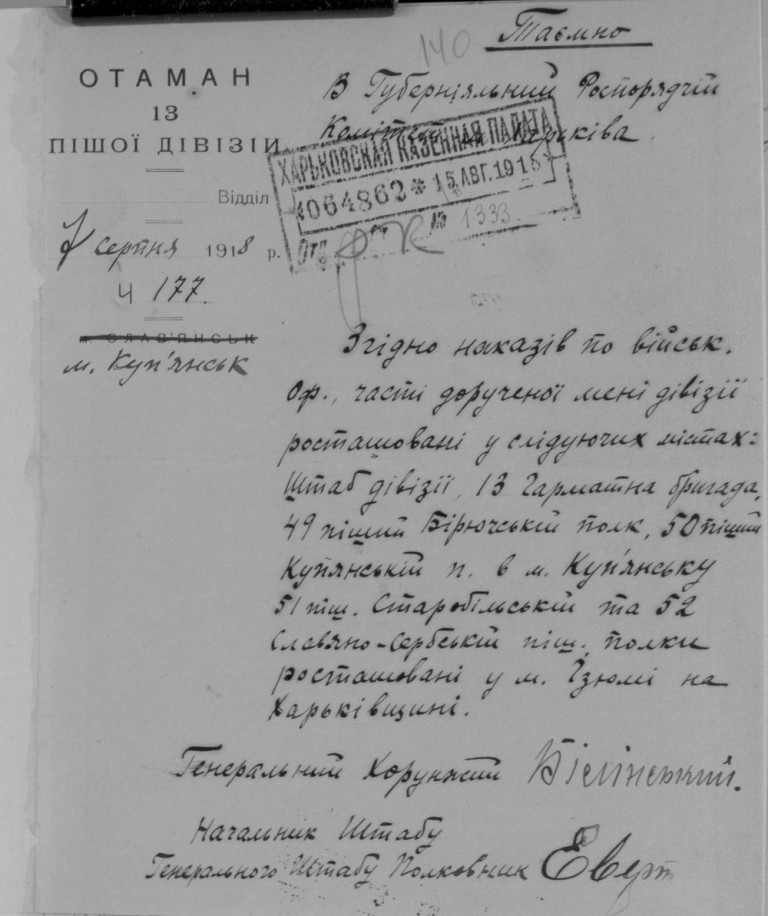 140
Таємно
ОТАМАН
13
ПІШОЇ ДІВІЗІИ
Відділ
7 серпня 1918 р.
Ч 177.
м. СЛАВ'ЯНСЬК
м. Куп'янськ
В Губерніяльний Роспорядчій
Комітет м. Харьківа.
ХАРЬКОВСКАЯ КАЗЕННАЯ ПАЛАТА
*064862* 15 АВГ. 1918
Отд. Ст. № 1333
Згідно наказів по військ.
Оф., часті дорученої мені дівізії
росташовані у слідуючих містах:
Штаб дівізії, 13 Гарматна бригада,
49 піший Бірючській полк, 50 піший
Купянській п. в м. Куп'янську
51 піш. Старобільській та 52
Славяно-Сербській піш. полки
росташовані у м. Ізюмі на
Харьківщині.
Генеральний Хорунжий Білінський.
Начальник Штабу
Генерального Штабу Полковник Еверт